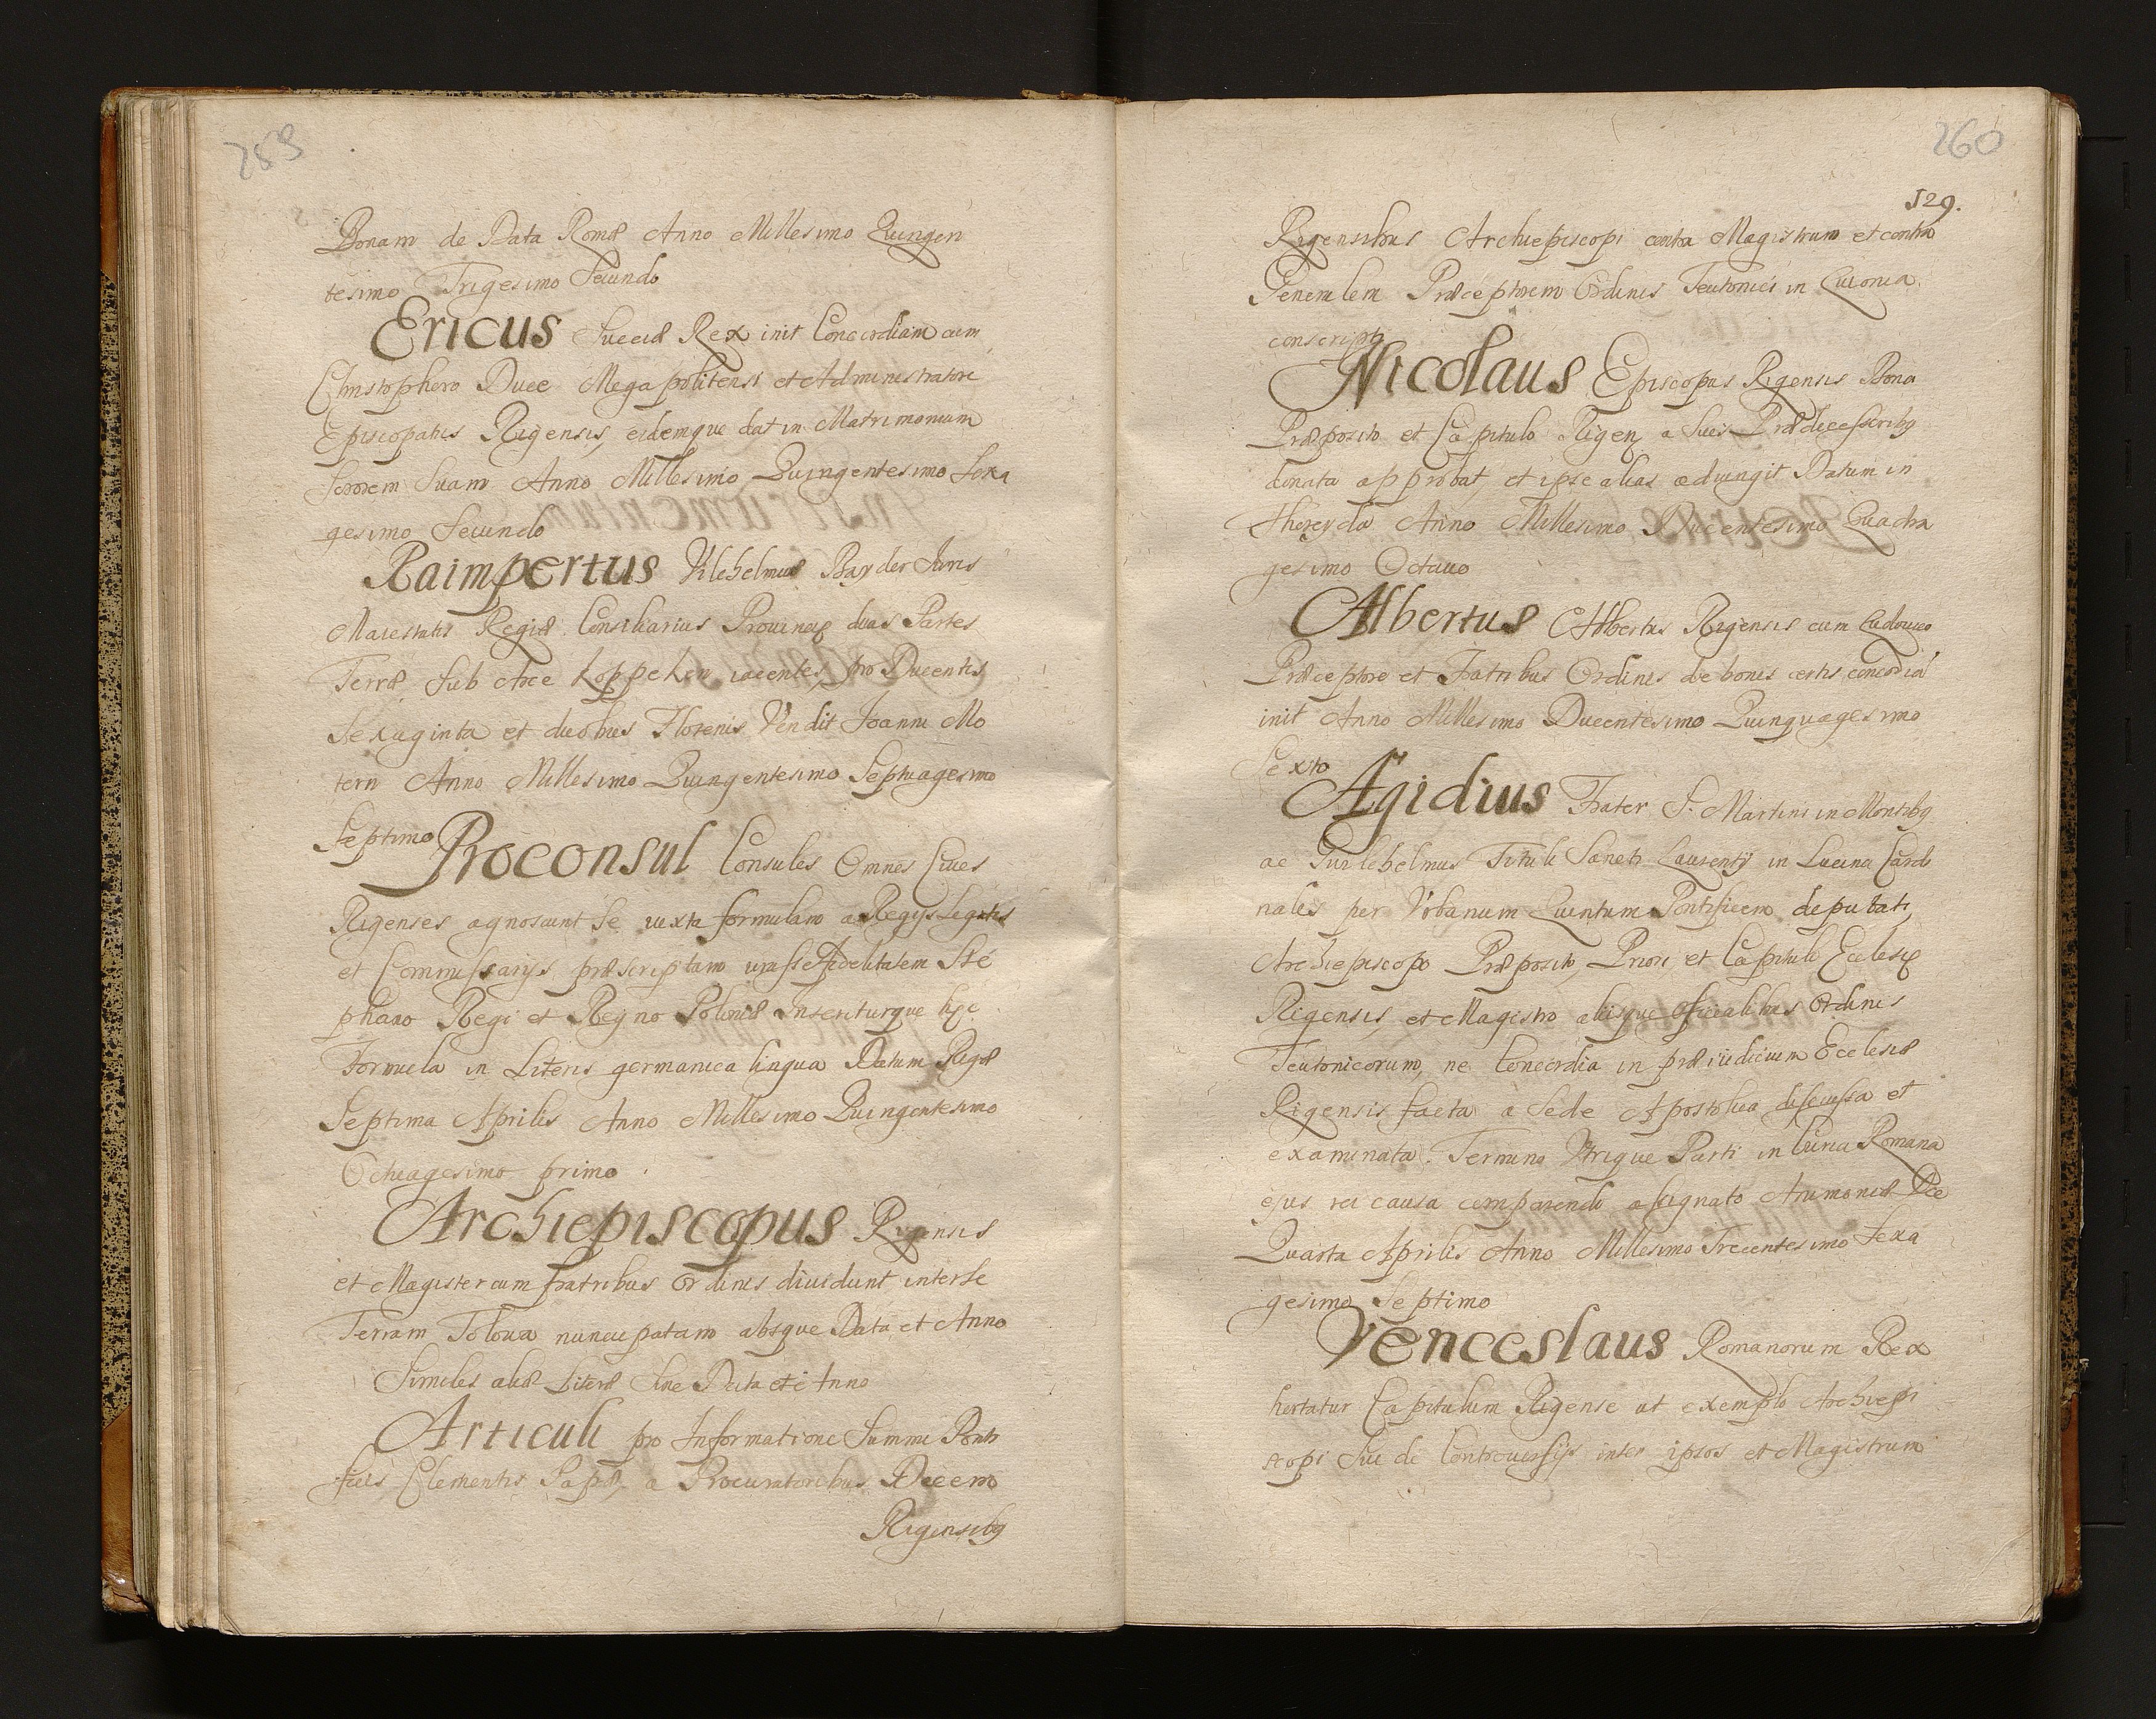 259
Bonam de Data Romæ Anno Millesimo Quingen
tesimo Trigesimo Secundo
Ericus Sueciæ Rex init Concordiam cum
Christophero Duce Megapolitensi et Administratore
Episcopatus Rigensis, eidemque dat in Matrimonium
Sororem Suam Anno Millesimo Quingentesimo Sexa
gesimo Secundo
Raimpertus Vilehelmus Bayder Juris
Maiestatis Regiæ Consiliarius Prouincię duas Partes
Terræ Sub Arce Loppeken iacentes, pro Ducentis
Sexaginta et duobus Florenis Vendit Joanni Mo
tern Anno Millesimo Quingentesimo Septuagesimo
Septimo
Proconsul Consules Omnes Ciues
Rigenses agnoscunt Se iuxta formulam a Regijs Legatis
et Commissarijs præscriptam iurasse Fidelitatem Ste
phano Regi et Regno Poloniæ Inseriturque hęc
Formula in Literis germanica lingua Datum Rigæ
Septima Aprilis Anno Millesimo Quingentesimo
Octuagesimo primo.
Archiepiscopus Rigensis
et Magister cum fratribus Ordinis diuidunt inter Se
Terram Toloua nuncupatam absque Data et Anno
Similes aliæ Literæ Sine Data et Anno
Articuli pro Informatione Summi Ponti
ficis Clementis Papæ, a Procuratoribus Decem
Rigensibꝫ
260
129.
Rigensibus Archiepiscopi contra Magistrum et contra
Generalem Præceptorem Ordinis Teutonici in Liuonia
conscripti
Nicolaus Episcopus Rigensis Bona
Præposito et Capitulo Rigen a Suis Prædicessoribꝫ
donata approbat, et ipse alias adiungit Datum in
Thoreyda Anno Millesimo Ducentesimo Quadra
gesimo Octauo
Albertus Albertus Rigensis cum Ludouico
Præceptore et Fratribus Ordinis de bonis certis concordiã
init Anno Millesimo Ducentesimo Quinquagesimo
Sexto
Ægidius Frater S. Martini in Montibꝫ
ac Guilehelmus Tituli Sancti Laurentij in Lucina Cardi
nales per Vrbanum Quintum Pontificem deputati
Archiepiscopo Præposito, Priori et Capituli Ecclesię
Rigensis, et Magistro alijsque Officialibus Ordinis
Teutonicorum, ne Concordia in præiudicium Ecclesiæ
Rigensis facta à Sede Apostolica discussa et
examinata. Termino Vtrique Parti in Curia Romana
ejus rei causa comparendi assignato Auinionæ Die
Quarta Aprilis Anno Millesimo Trecentesimo Sexa
gesimo Septimo
Venceslaus Romanorum Rex
hortatur Capitulum Rigense ut exemplo Archiepi
scopi Sui de Controuersijs inter ipsos et Magistrum